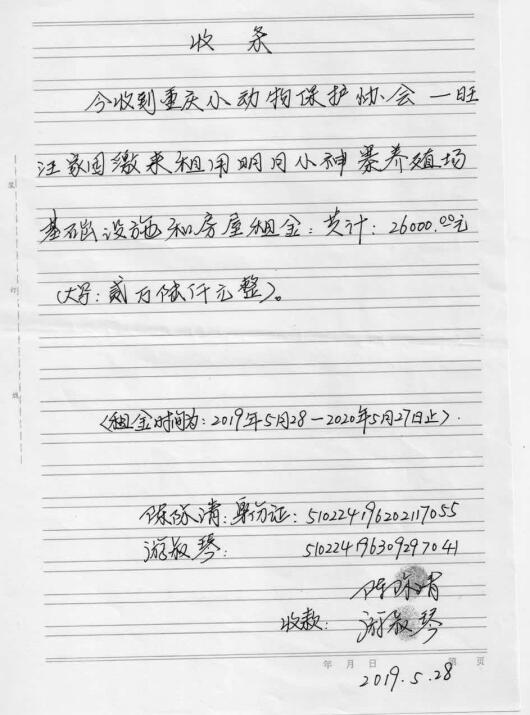 收条
今收到重庆小动物保护协会一旺
汪家园缴来租用明月小神寨养殖场
基础设施和房屋租金:共计:26000.00元
(大写:贰万陆仟元整)。
(租金时间为:2019年5月28—2020年5月27日止).
陈陈清:身份证:510224196202117055
游叔琴:510224196309297041
陈陈清
收款:游叔琴
年 月 日 第 页
2019.5.28
装
订
线